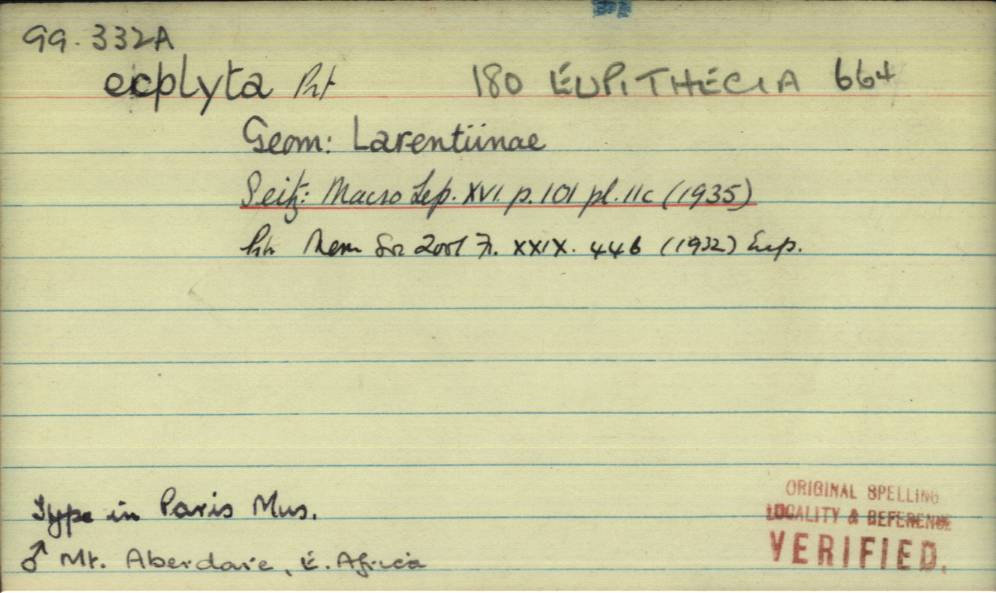 99.332A
ecplyta Prt 180 EUPITHECIA 664
Geom: Larentiinae
Seitz: Macro Lep. XVI. p. 101 pl. 11c (1935)
Prt. Mem Soc Zool Fr. XXIX. 446 (1932) Eup.
Type in Paris Mus.
♂ Mt. Aberdare, E. Africa
ORIGINAL SPELLING
LOCALITY & REFERENCE
VERIFIED.